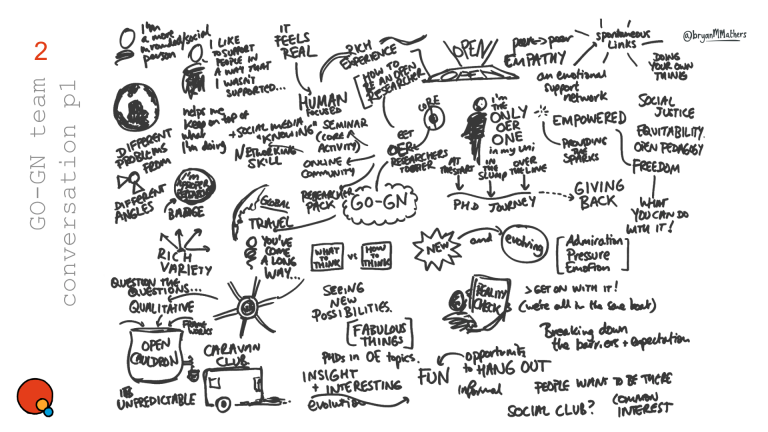 2
GO-GN team
conversation p1
@bryanMMathers
I'm
a more
rounded/social
person
I LIKE
TO SUPPORT
PEOPLE IN
A WAY THAT
I WASN'T
SUPPORTED...
IT
FEELS
REAL
RICH
EXPERIENCE
HUMAN
FOCUSED
HOW TO
BE AN OPEN
RESEARCHER
OPEN
peer → peer
EMPATHY
spontaneous
Links
an emotional
support
network
DOING
YOUR OWN
THING
DIFFERENT
PROBLEMS
FROM
DIFFERENT
ANGLES
helps me
keep on top of
what
I'm doing
+ SOCIAL MEDIA
"KNOWING"
NETWORKING
SKILL
SEMINAR
(CORE
ACTIVITY)
ONLINE
COMMUNITY
RESEARCHER
PACK
CORE
GET
OER
RESEARCHERS
TOGETHER
I'm
THE
ONLY
OER
ONE
in my uni
AT
THE START
IN
THE
SLUMP
OVER
THE LINE
PHD JOURNEY
GIVING
BACK
EMPOWERED
PROVIDING
THE
SPARKS
SOCIAL
JUSTICE
EQUITABILITY.
OPEN PEDAGOGY
FREEDOM
WHAT
YOU CAN DO
WITH IT!
I'm
A PROPER
RESEARCHER
BADGE
GLOBAL
TRAVEL
GO-GN
RICH
VARIETY
YOU'VE
COME
A LONG
WAY...
WHAT
TO
THINK
vs
HOW
TO
THINK
NEW
and
evolving
Admiration
Pressure
Emotion
QUESTION THE
QUESTIONS...
QUALITATIVE
OPEN
CAULDRON
IS
UNPREDICTABLE
CARAVAN
CLUB
SEEING
NEW
POSSIBILITIES.
FABULOUS
THINGS
PHDs in OE topics.
INSIGHT
+ INTERESTING
evolution
REALITY
CHECK
> GET ON WITH IT!
(we're all in the same boat)
Breaking down
the barriers + expectation
FUN
opportunity
to HANG OUT
informal
PEOPLE WANT TO BE THERE
SOCIAL CLUB?
(COMMON
INTEREST